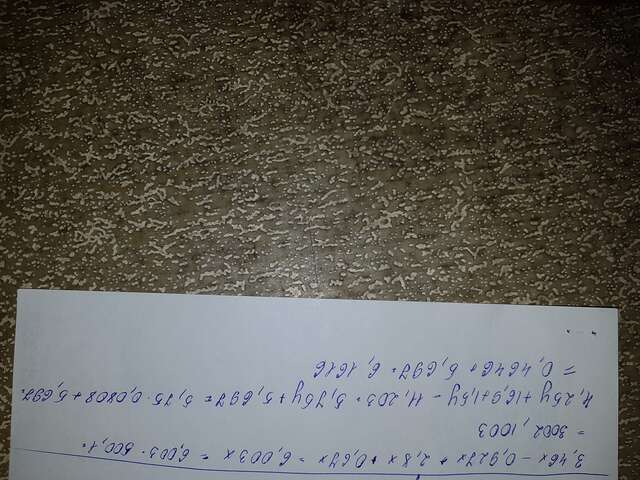 3,46x - 0,927x + 2,8x + 0,67x = 6,003x = 6,003 · 500,1 =
= 3002,1003
4,25y + 16,9 + 1,5y - 11,203 = 5,75y + 5,697 = 5,75 · 0,0808 + 5,697 =
= 0,4646 + 5,697 = 6,1616